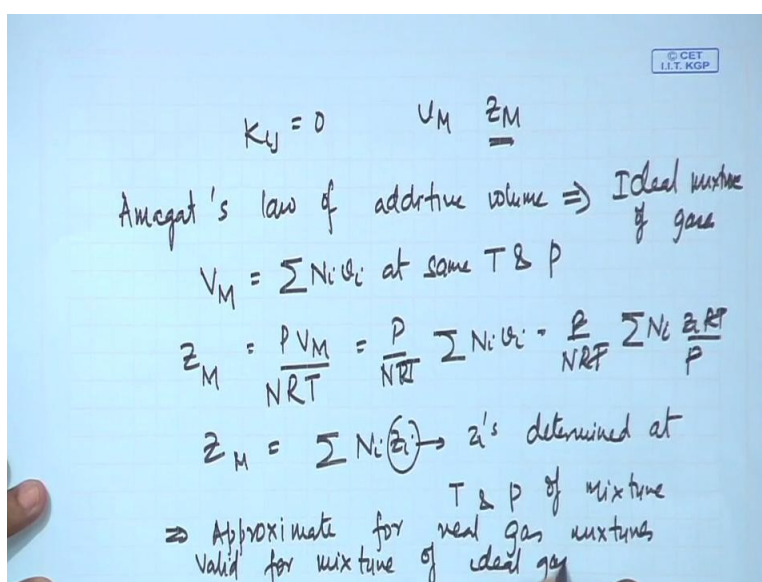 © CET
I.I.T. KGP
Kij = 0 VM ZM
Amagat's law of additive volume ⇒ Ideal mixture
of gases
VM = ΣNi vi at same T & P
ZM = PVM/NRT = P/NRT ΣNi vi = P/NRT ΣNi ziRT/P
ZM = ΣNi zi → zi's determined at
T & P of mixture
⇒ Approximate for real gas mixtures
Valid for mixture of ideal gas